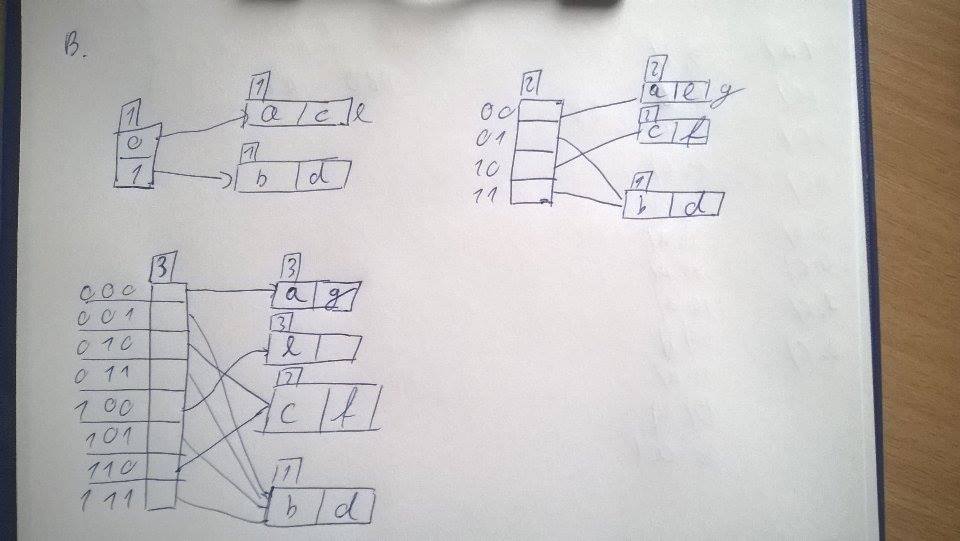 B.
1
0
1
1
a c e
1
b d
2
00
01
10
11
2
a e g
2
c f
1
b d
3
000
001
010
011
100
101
110
111
3
a g
3
e
2
c f
1
b d